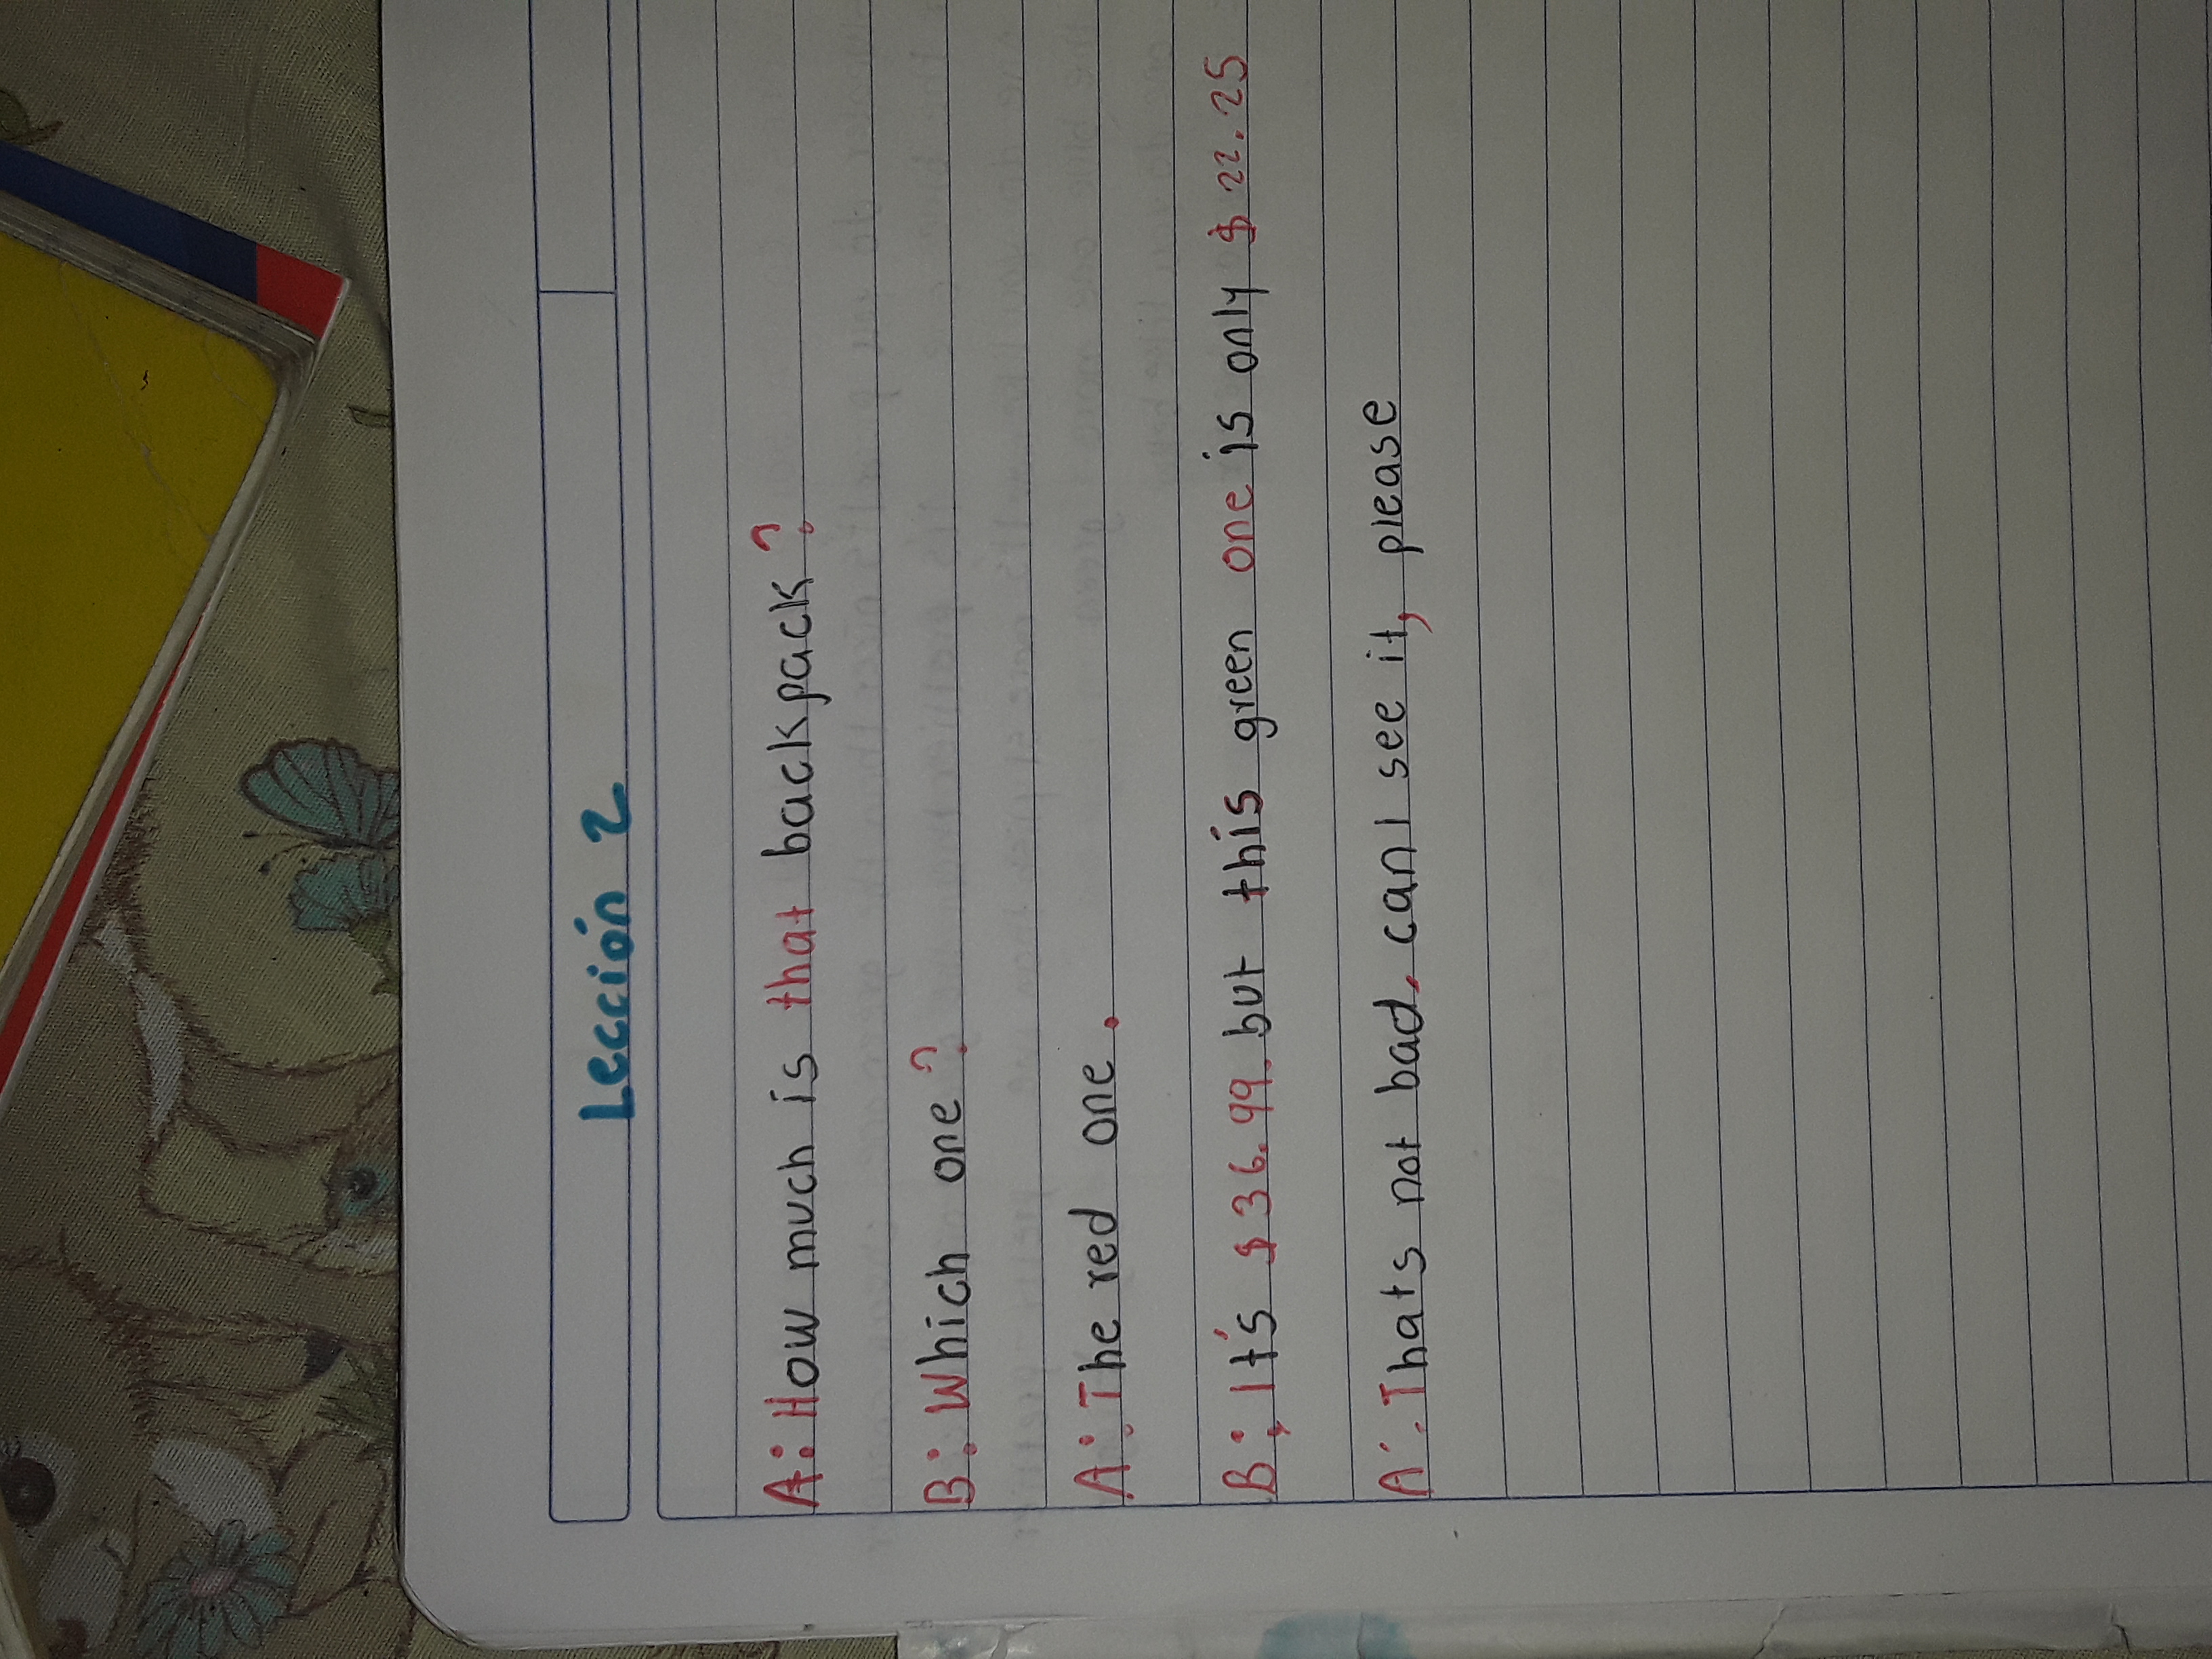 Lección 2
A: How much is that backpack?
B: Which one?
A: The red one.
B: It's $36.99. but this green one is only $22.25
A: Thats not bad, can I see it, please